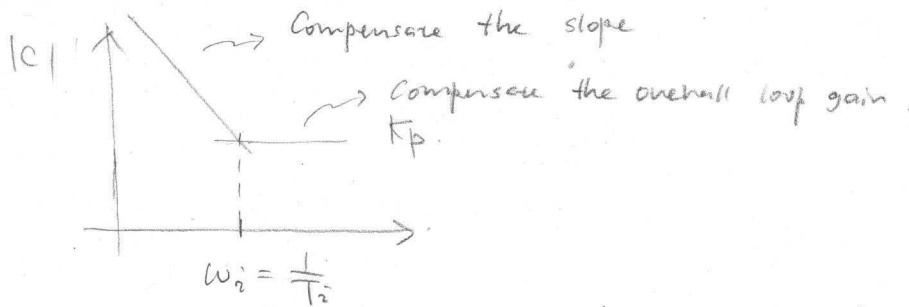 Compensare the slope
|C|
Compensate the overall loop gain
Kp.
ωi = 1/Ti